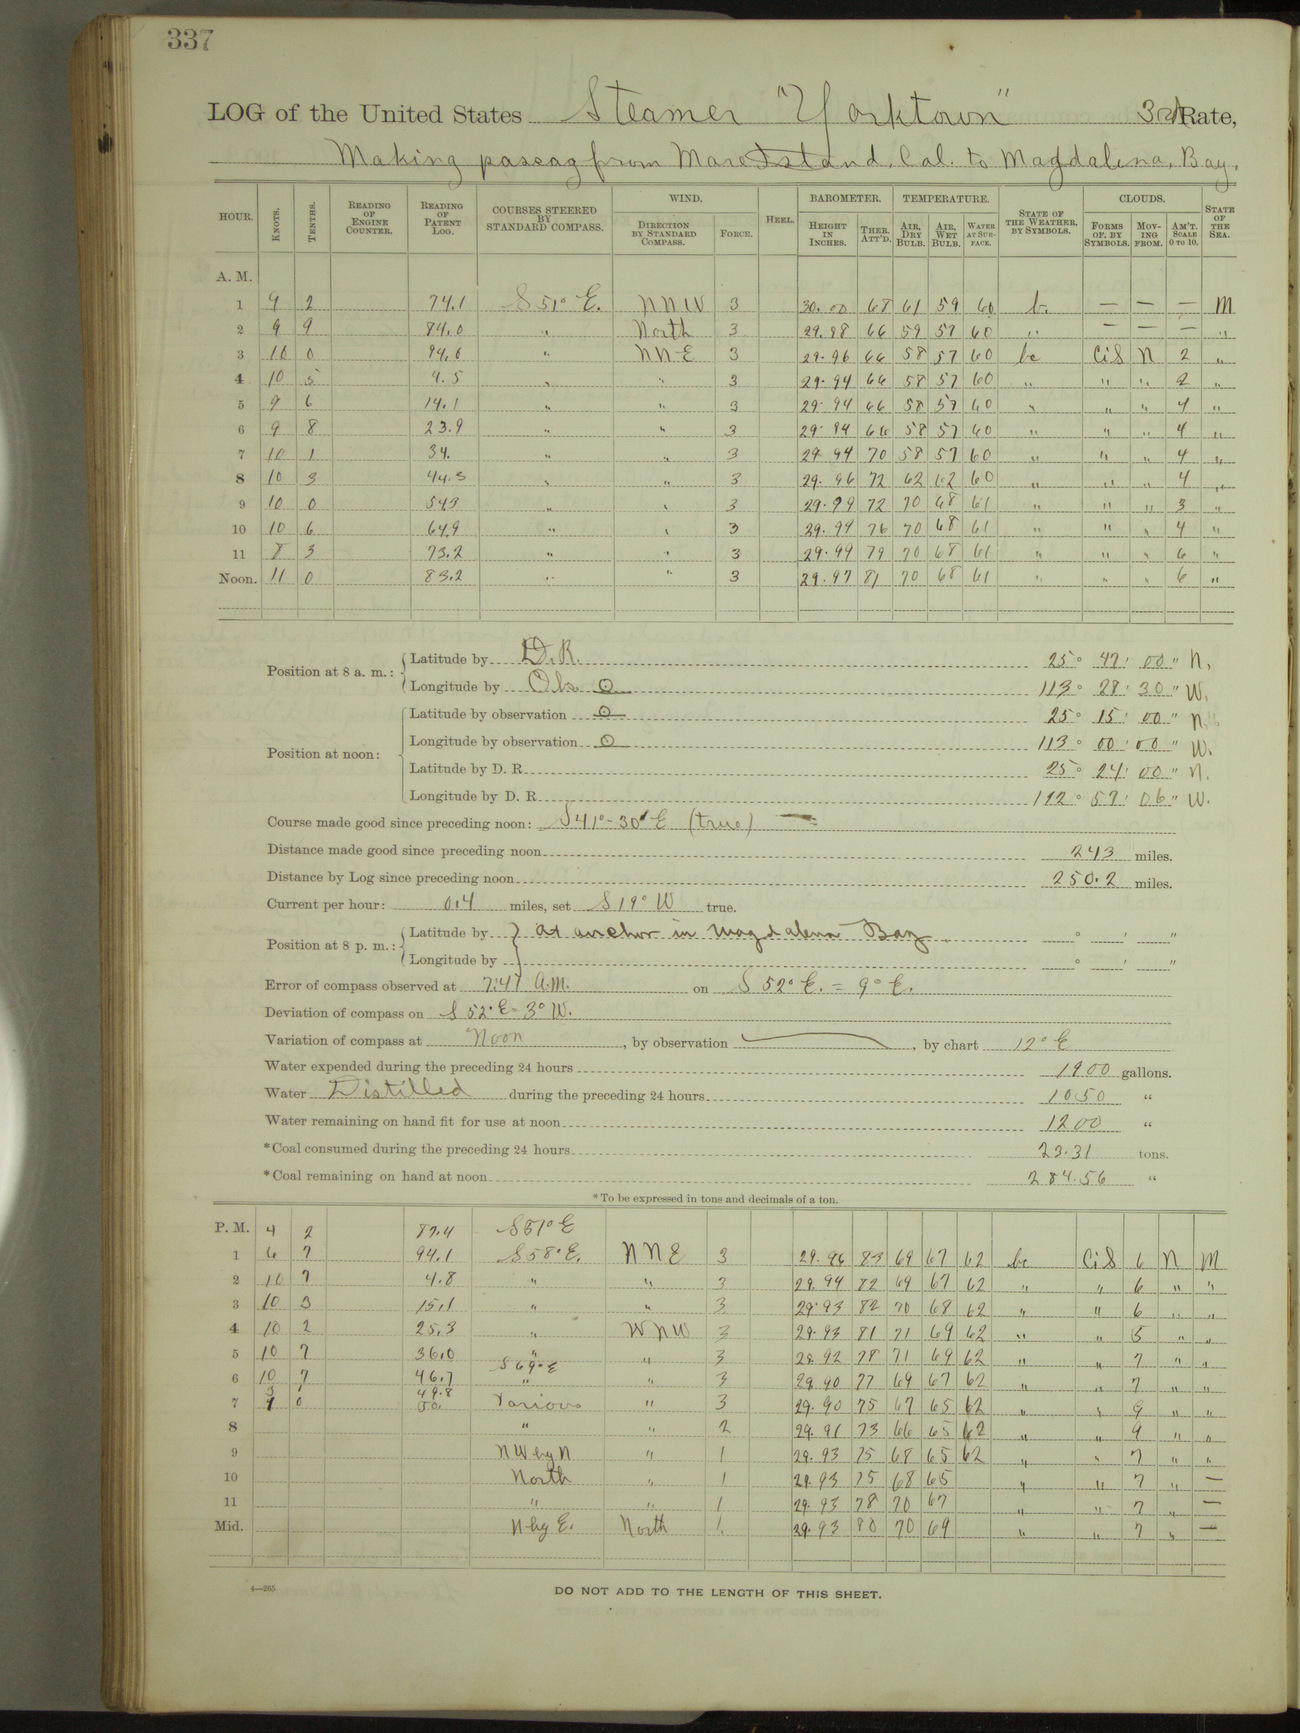 337
LOG of the United States Steamer "Yorktown" 3rd Rate,
Making passag from Mare Island. Cal. to Magdalena, Bay.
HOUR. KNOTS. TENTHS. READING OF ENGINE COUNTER. READING OF PATENT LOG. COURSES STEERED BY STANDARD COMPASS. WIND. DIRECTION BY STANDARD COMPASS. FORCE. HEEL. BAROMETER. HEIGHT IN INCHES. THER. ATT'D. TEMPERATURE. AIR, DRY BULB. AIR, WET BULB. WATER AT SURFACE. STATE OF THE WEATHER, BY SYMBOLS. CLOUDS. FORMS OF, BY SYMBOLS. MOVING FROM. AM'T. SCALE 0 TO 10. STATE OF THE SEA.
A. M.
1 9 2 74.1 S 51° E. NNW 3 30.00 68 61 59 60 b. — — — M
2 9 9 84.0 " North 3 29.98 66 59 57 60 " — — — "
3 10 0 94.0 " NNE 3 29.96 66 58 57 60 bc CiS N 2 "
4 10 5 4.5 " " 3 29.94 66 58 57 60 " " " 2 "
5 9 6 14.1 " " 3 29.94 66 58 57 60 " " " 4 "
6 9 8 23.9 " " 3 29.94 66 58 57 60 " " " 4 "
7 10 1 34. " " 3 29.94 70 58 57 60 " " " 4 "
8 10 3 44.3 " " 3 29.96 72 62 62 60 " " " 4 "
9 10 0 54.3 " " 3 29.99 72 70 68 61 " " " 3 "
10 10 6 64.9 " " 3 29.97 76 70 68 61 " " " 4 "
11 8 3 73.2 " " 3 29.99 79 70 68 61 " " " 6 "
Noon. 11 0 83.2 " " 3 29.97 81 70 68 61 " " " 6 "
Position at 8 a. m.: Latitude by D.R. 25° 47' 00" N.
Longitude by Obs 113° 28' 30" W.
Position at noon: Latitude by observation 25° 15' 00" N.
Longitude by observation 113° 00' 00" W.
Latitude by D. R. 25° 24' 00" N.
Longitude by D. R. 112° 57' 06" W.
Course made good since preceding noon: S 41°-30' E (true)
Distance made good since preceding noon 243 miles.
Distance by Log since preceding noon 250.2 miles.
Current per hour: 0.4 miles, set S 19° W true.
Position at 8 p. m.: Latitude by } at anchor in Magdalena Bay ° ' "
Longitude by ° ' "
Error of compass observed at 7:47 A.M. on S 52° E. = 9° E.
Deviation of compass on S 52° E - 3° W.
Variation of compass at Noon, by observation , by chart 12° E
Water expended during the preceding 24 hours 1900 gallons.
Water Distilled during the preceding 24 hours 1050 "
Water remaining on hand fit for use at noon 1200 "
*Coal consumed during the preceding 24 hours 23.31 tons.
*Coal remaining on hand at noon 284.56 "
*To be expressed in tons and decimals of a ton.
P. M. 4 2 87.4 S 51° E
1 6 7 94.1 S 58° E. NNE 3 29.96 83 69 67 62 bc CiS 6 N M
2 10 7 4.8 " " 3 29.94 82 69 67 62 " " 6 " "
3 10 3 15.1 " " 3 29.93 82 70 68 62 " " 6 " "
4 10 2 25.3 " WNW 3 29.93 81 71 69 62 " " 5 " "
5 10 7 36.0 " " 3 29.92 78 71 69 62 " " 7 " "
S 69° E
6 10 7 46.7 " " 3 29.90 77 69 67 62 " " 7 " "
3 1 49.8
7 0 Various " 3 29.90 75 67 65 62 " " 9 " "
8 " " 2 29.91 73 66 65 62 " " 9 " "
9 NW by N " 1 29.93 75 68 65 62 " " 7 " "
10 North " 1 29.93 75 68 65 " " 7 " —
11 " " 1 29.93 78 70 67 " " 7 " —
Mid. N by E. North 1 29.93 80 70 69 " " 7 " —
4—265
DO NOT ADD TO THE LENGTH OF THIS SHEET.